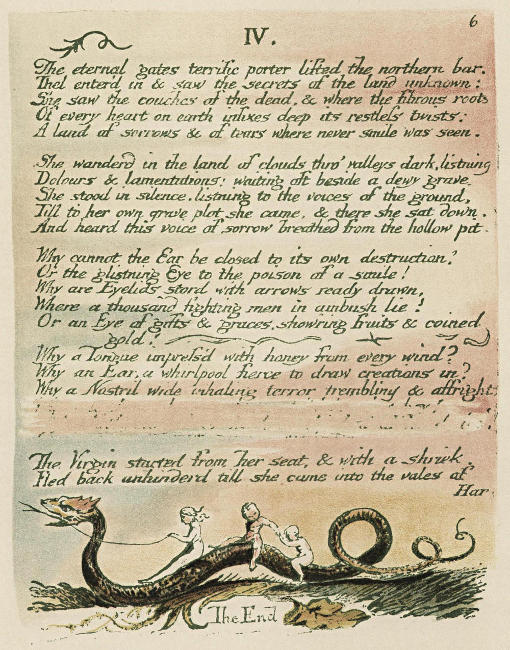 6
IV.
The eternal gates terrific porter lifted the northern bar:
Thel enter'd in & saw the secrets of the land unknown:
She saw the couches of the dead, & where the fibrous roots
Of every heart on earth infixes deep its restless twists:
A land of sorrows & of tears where never smile was seen.
She wanderd in the land of clouds thro' valleys dark, listning
Dolours & lamentations: waiting oft beside a dewy grave
She stood in silence, listning to the voices of the ground,
Till to her own grave plot she came, & there she sat down.
And heard this voice of sorrow breathed from the hollow pit.
Why cannot the Ear be closed to its own destruction?
Or the glistning Eye to the poison of a smile!
Why are Eyelids stord with arrows ready drawn,
Where a thousand fighting men in ambush lie!
Or an Eye of gifts & graces, showring fruits & coined
gold!
Why a Tongue impress'd with honey from every wind?
Why an Ear, a whirlpool fierce to draw creations in?
Why a Nostril wide inhaling terror trembling & affright
The Virgin started from her seat, & with a shriek
Fled back unhinderd till she came into the vales of
Har
The End